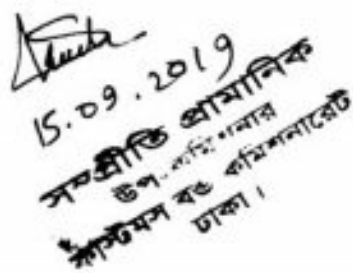 15.09.2019
সম্প্রীতি প্রামানিক
উপ-কমিশনার
কাস্টমস বন্ড কমিশনারেট
ঢাকা।